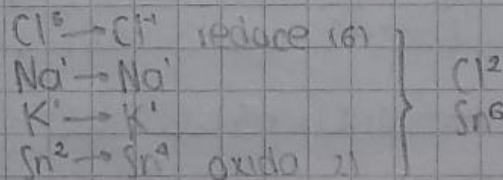 Cl⁵ → Cl⁻¹ reduce (6)
Na¹ → Na¹
K¹ → K¹
Sn² → Sn⁴ oxida 2)
Cl²
Sn⁶